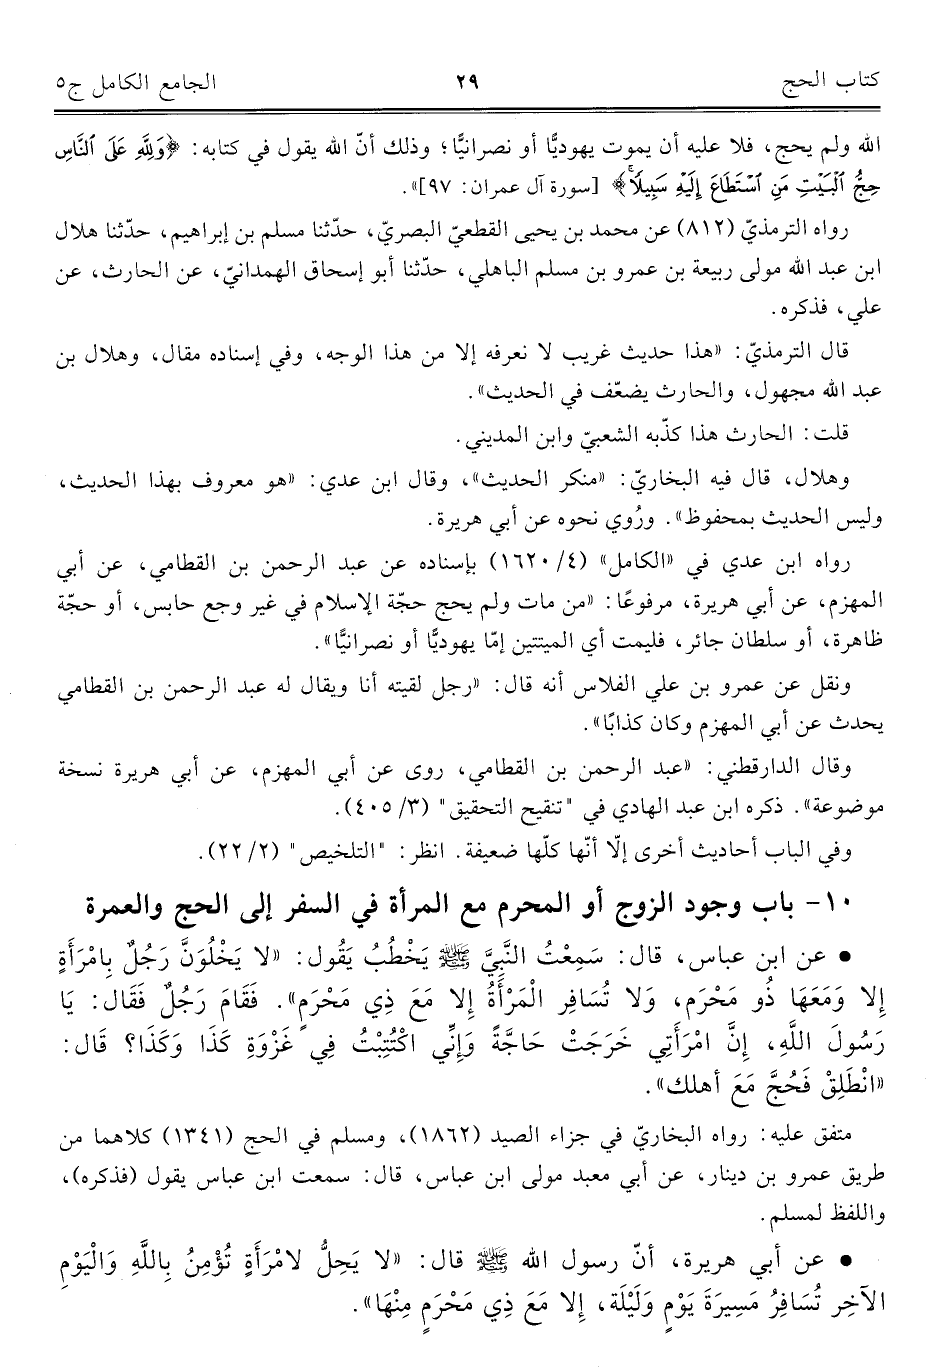 كتاب الحج ٢٩ الجامع الكامل ج٥
الله ولم يحج، فلا عليه أن يموت يهوديًّا أو نصرانيًّا؛ وذلك أنّ الله يقول في كتابه: ﴿وَلِلَّهِ عَلَى ٱلنَّاسِ
حِجُّ ٱلْبَيْتِ مَنِ ٱسْتَطَاعَ إِلَيْهِ سَبِيلًا﴾ [سورة آل عمران: ٩٧]».
رواه الترمذيّ (٨١٢) عن محمد بن يحيى القطعيّ البصري، حدّثنا مسلم بن إبراهيم، حدّثنا هلال
ابن عبد الله مولى ربيعة بن عمرو بن مسلم الباهلي، حدّثنا أبو إسحاق الهمدانيّ، عن الحارث، عن
علي، فذكره.
قال الترمذيّ: «هذا حديث غريب لا نعرفه إلا من هذا الوجه، وفي إسناده مقال، وهلال بن
عبد الله مجهول، والحارث يضعّف في الحديث».
قلت: الحارث هذا كذّبه الشعبيّ وابن المديني.
وهلال، قال فيه البخاريّ: «منكر الحديث»، وقال ابن عدي: «هو معروف بهذا الحديث،
وليس الحديث بمحفوظ». ورُوي نحوه عن أبي هريرة.
رواه ابن عدي في «الكامل» (٤/ ١٦٢٠) بإسناده عن عبد الرحمن بن القطامي، عن أبي
المهزم، عن أبي هريرة، مرفوعًا: «من مات ولم يحج حجّة الإسلام في غير وجع حابس، أو حجّة
ظاهرة، أو سلطان جائر، فليمت أي الميتتين إمّا يهوديًّا أو نصرانيًّا».
ونقل عن عمرو بن علي الفلاس أنه قال: «رجل لقيته أنا ويقال له عبد الرحمن بن القطامي
يحدث عن أبي المهزم وكان كذابًا».
وقال الدارقطني: «عبد الرحمن بن القطامي، روى عن أبي المهزم، عن أبي هريرة نسخة
موضوعة». ذكره ابن عبد الهادي في "تنقيح التحقيق" (٣/ ٤٠٥).
وفي الباب أحاديث أخرى إلّا أنّها كلّها ضعيفة. انظر: "التلخيص" (٢/ ٢٢).
١٠- باب وجود الزوج أو المحرم مع المرأة في السفر إلى الحج والعمرة
• عن ابن عباس، قال: سَمِعْتُ النَّبِيَّ ﷺ يَخْطُبُ يَقُول: «لا يَخْلُوَنَّ رَجُلٌ بِامْرَأَةٍ
إِلا وَمَعَهَا ذُو مَحْرَم، وَلا تُسَافِرِ الْمَرْأَةُ إِلا مَعَ ذِي مَحْرَمٍ». فَقَامَ رَجُلٌ فَقَال: يَا
رَسُولَ اللَّهِ، إِنَّ امْرَأَتِي خَرَجَتْ حَاجَّةً وَإِنِّي اكْتُتِبْتُ فِي غَزْوَةِ كَذَا وَكَذَا؟ قَال:
«انْطَلِقْ فَحُجَّ مَعَ أهلك».
متفق عليه: رواه البخاريّ في جزاء الصيد (١٨٦٢)، ومسلم في الحج (١٣٤١) كلاهما من
طريق عمرو بن دينار، عن أبي معبد مولى ابن عباس، قال: سمعت ابن عباس يقول (فذكره)،
واللفظ لمسلم.
• عن أبي هريرة، أنّ رسول الله ﷺ قال: «لا يَحِلُّ لامْرَأَةٍ تُؤْمِنُ بِاللَّهِ وَالْيَوْمِ
الآخِرِ تُسَافِرُ مَسِيرَةَ يَوْمٍ وَلَيْلَة، إِلا مَعَ ذِي مَحْرَمٍ مِنْهَا».